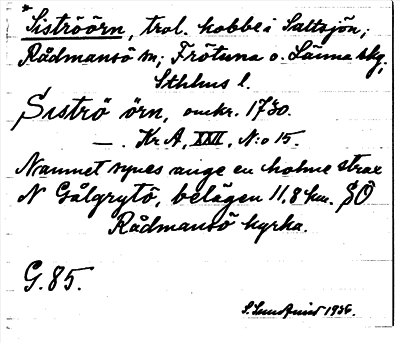 *Siströörn, trol. kobbe i Saltsjön;
Rådmansö sn; Frötuna o. Länna skg,
Sthlms l.
Siströ örn, omkr. 1730.
—. Kr A, XXII, N:o 15.
Namnet synes ange en holme strax
N Gålgrytö, belägen 11,8 km. SÖ
Rådmansö kyrka.
G. 85.
S. Lundqvist 1936.